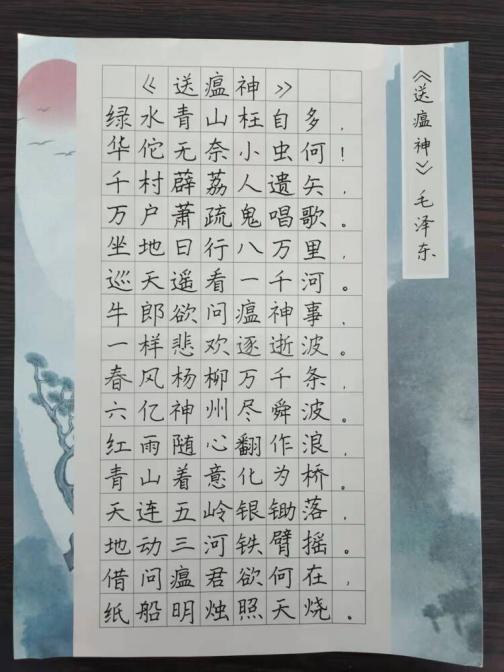 《送瘟神》
绿水青山枉自多，
华佗无奈小虫何！
千村薜荔人遗矢，
万户萧疏鬼唱歌。
坐地日行八万里，
巡天遥看一千河。
牛郎欲问瘟神事，
一样悲欢逐逝波。
春风杨柳万千条，
六亿神州尽舜波。
红雨随心翻作浪，
青山着意化为桥。
天连五岭银锄落，
地动三河铁臂摇。
借问瘟君欲何在，
纸船明烛照天烧。
《送瘟神》毛泽东